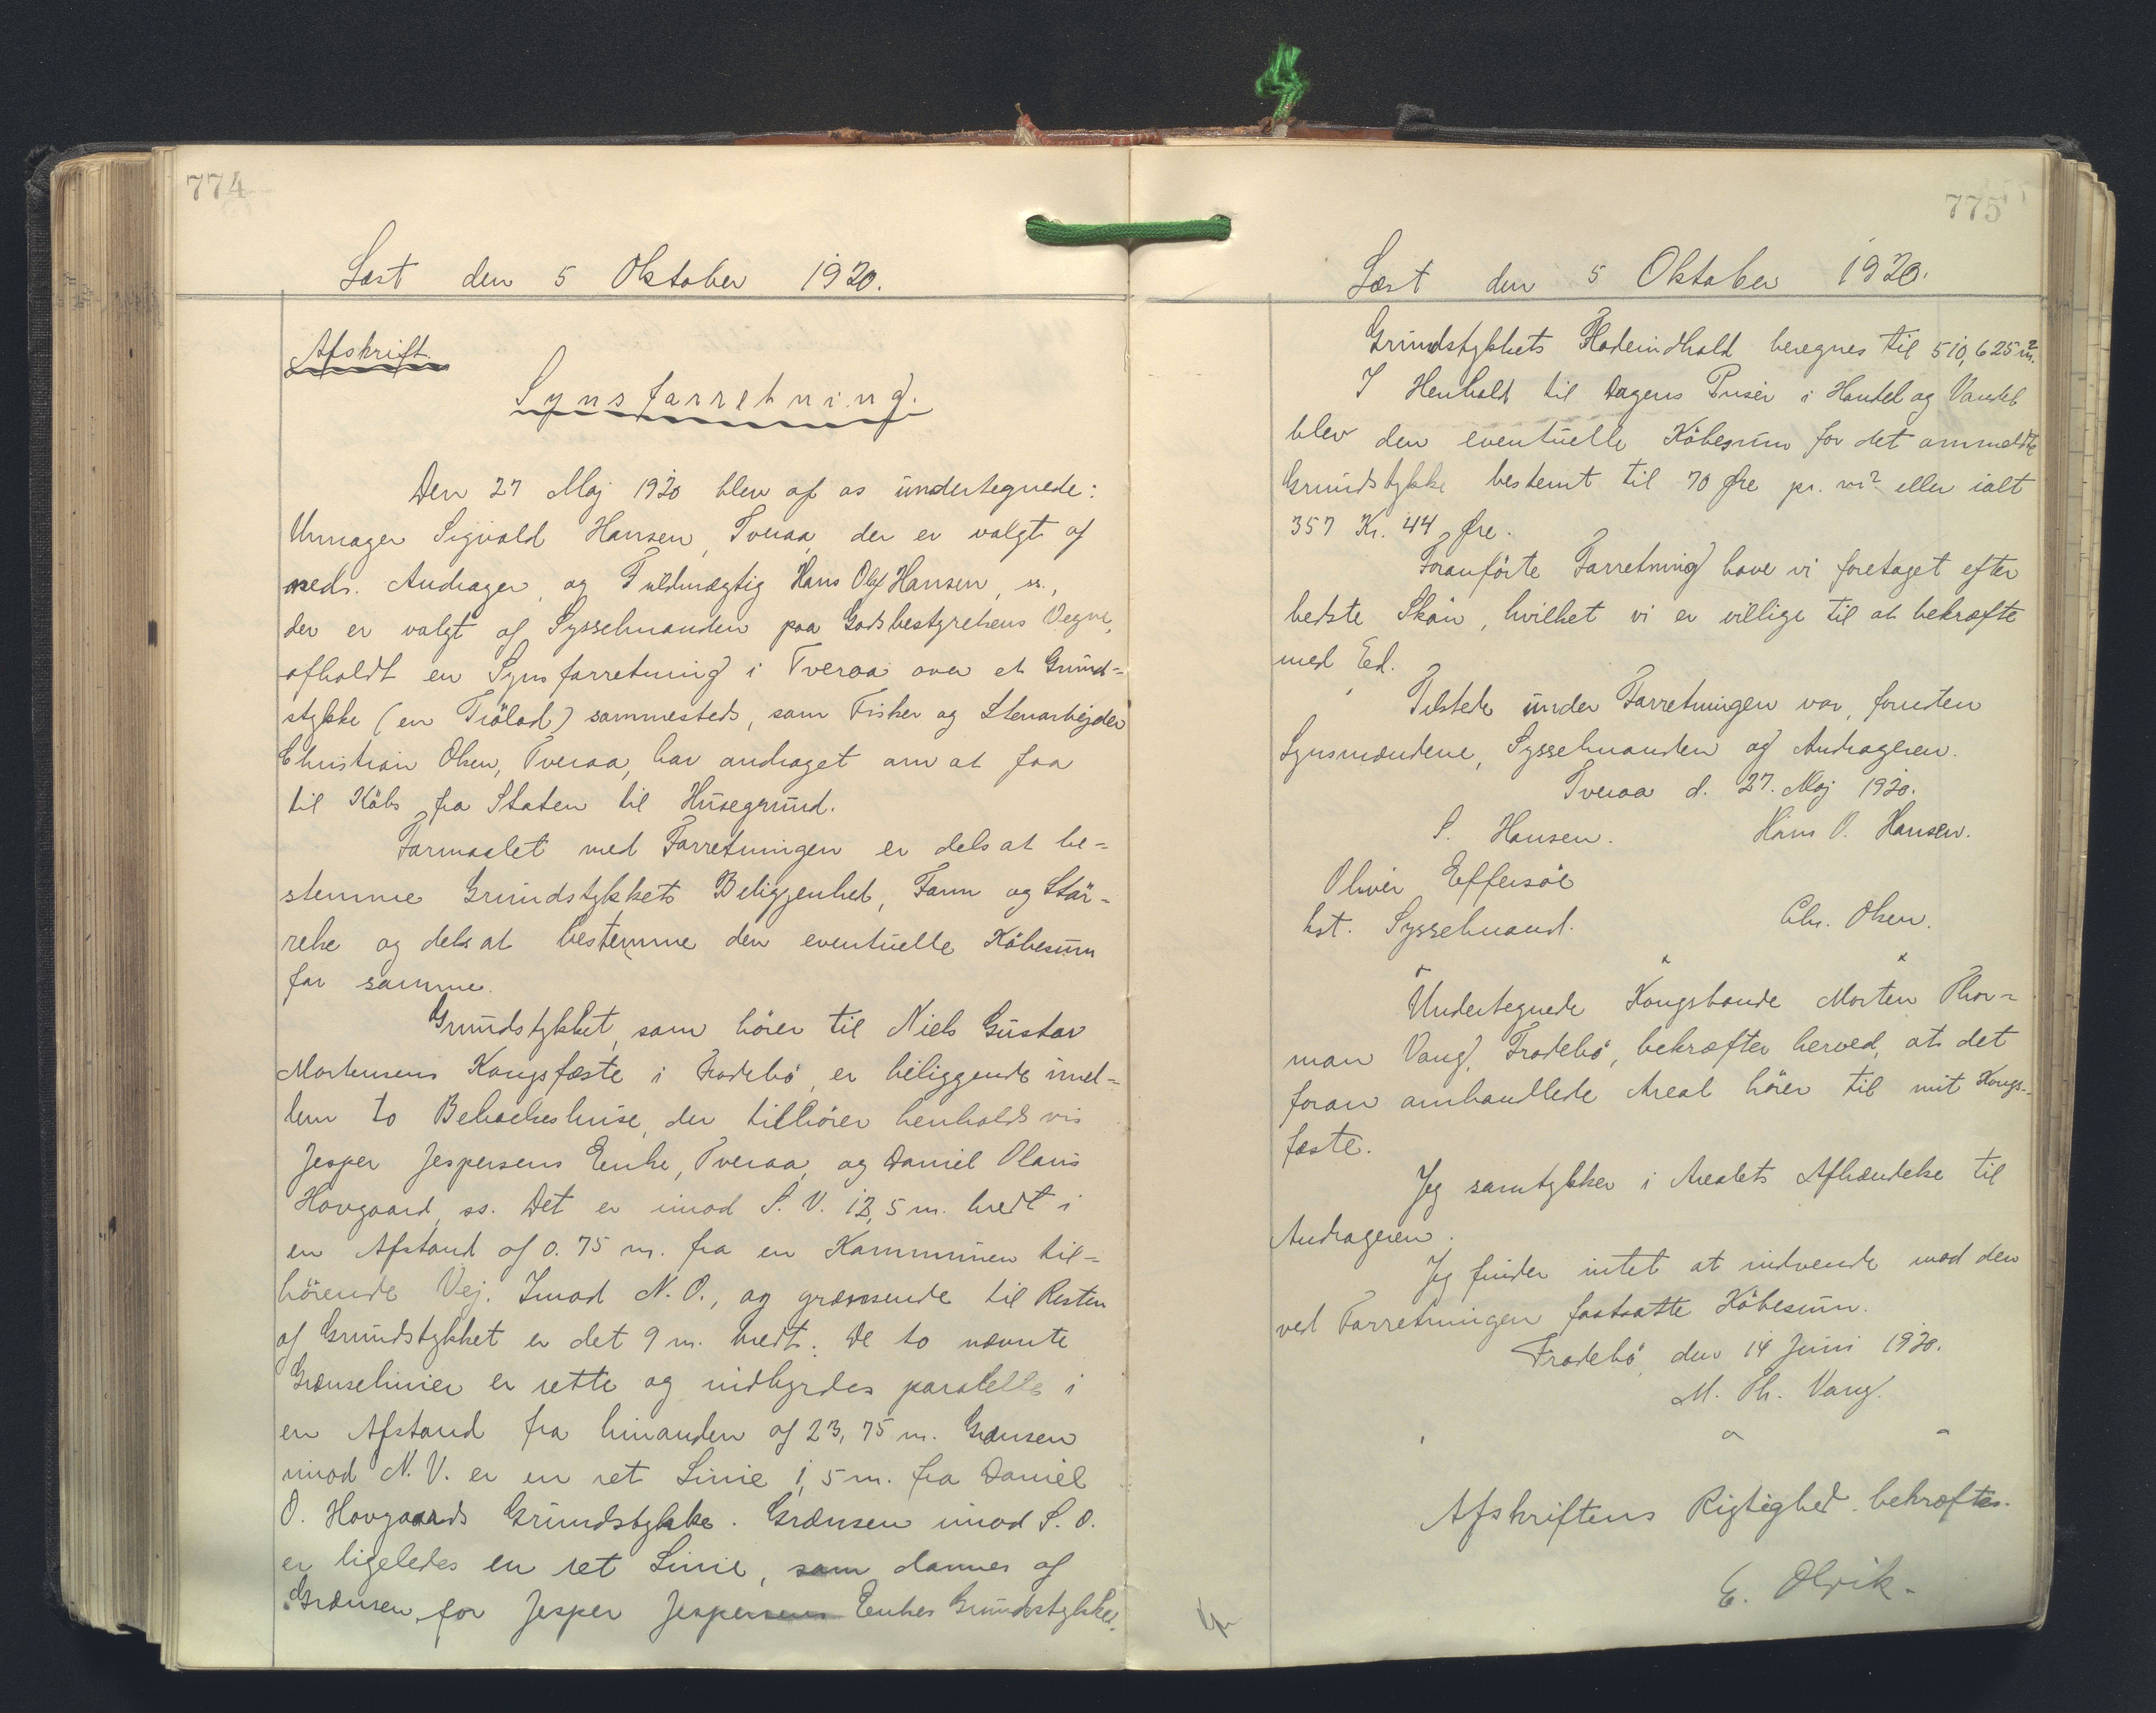 774
Læst den 5 Oktober 1920.
Afskrift.
Synsforretning.
Den 27 Maj 1920 blev af os undertegnede:
Urmager Sigvald Hansen, Tveraa, der er valgt af
neds. Andrager, og Fuldmægtig Hans Olaf Hansen, ss.,
der er valgt af Sysselmanden paa Godsbestyrelsens Vegne,
afholdt en Synsforretning i Tveraa over et Grund-
stykke (en Trölad) sammesteds, som Fisker og Stenarbejder
Christian Olsen, Tveraa, har andraget om at faa
til Köbs fra Staten til Husegrund.
Formaalet med Forretningen er dels at be-
stemme Grundstykkets Beliggenhed, Form og Stör-
relse og dels at bestemme den eventuelle Köbesum
for samme.
Grundstykket, som hörer til Niels Gustav
Mortensens Kongsfæste i Frodebö, er beliggende imel-
lem to Beboelseshuse, der tilhörer henholdsvis
Jesper Jespersens Enke, Tveraa, og Daniel Olaus
Hovgaard, ss. Det er imod S. V. 12,5 m. bredt i
en Afstand af 0.75 m. fra en Kommunen til-
hörende Vej. Imod N. O., og grænsende til Resten
af Grundstykket er det 9 m. bredt. De to nævnte
Grænselinier er rette og indbyrdes paralelle i
en Afstand fra hinanden af 23,75 m. Grænsen
imod N. V. er en ret Linie 1,5 m. fra Daniel
O. Hovgaards Grundstykke. Grænsen imod S. O.
er ligeledes en ret Linie, som dannes af
Grænsen for Jesper Jespersens Enkes Grundstykke.
775
Læst den 5 Oktober 1920.
Grundstykkets Fladeindhold beregnes til 510,625 m².
I Henhold til Dagens Priser i Handel og Vandel
blev den eventuelle Köbesum for det ommeldte
Grundstykke bestemt til 70 Øre pr. m² eller ialt
357 Kr. 44 Øre.
Foranförte Forretning have vi foretaget efter
bedste Skön, hvilket vi er villige til at bekræfte
med Ed.
Tilstede under Forretningen var, foruden
Synsmændene, Sysselmanden og Andrageren.
Tveraa d. 27. Maj 1920.
S. Hansen. Hans O. Hansen.
Oliver Effersöe
kst. Sysselmand. Chr. Olsen.
Undertegnede Kongsbonde Morten Thor-
man Vang, Frodebö, bekræfter herved, at det
foran omhandlede Areal hörer til mit Kongs-
fæste.
Jeg samtykker i Arealets Afhændelse til
Andrageren.
Jeg finder intet at indvende mod den
ved Forretningen fastsatte Köbesum.
Frodebö, den 14 Juni 1920.
M. Th. Vang.
Afskriftens Rigtighed bekræftes.
E. Olrik.